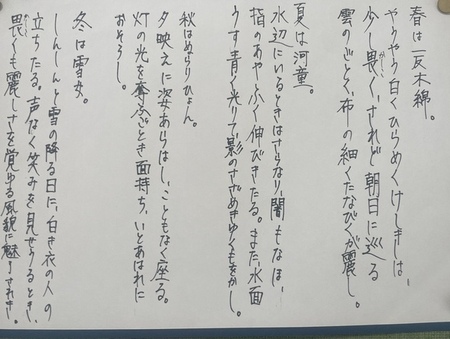 春は一反木綿。
やうやう白くひらめくけしきは、
少し畏く、されど朝日に巡る
雲のごとく、布の細くたなびくが麗し。
夏は河童。
水辺にいるときはさらなり、闇もなほ、
指のあやしく伸びきたる。また、水面
うす青く光りて影のさざめきゆくもをかし。
秋はぬらりひょん。
夕映えに姿あらはし、こともなく座る。
灯の光を奪ふごとき面持ち、いとあはれに
おそろし。
冬は雪女。
しんしんと雪の降る日に、白き衣の人の
立ちたる。声なく笑みを見せりるとき、
畏くも麗しさを覚ゆる風貌に魅りされき。